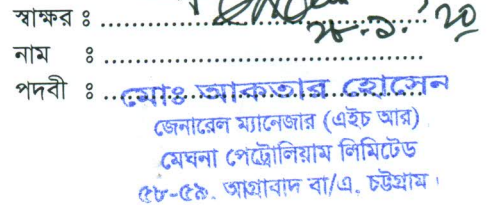 স্বাক্ষর ঃ ........................ ২৮.১. ২০
নাম ঃ ........................
পদবী ঃ ........................
মোঃ আকতার হোসেন
জেনারেল ম্যানেজার (এইচ আর)
মেঘনা পেট্রোলিয়াম লিমিটেড
৫৮-৫৯, আগ্রাবাদ বা/এ, চট্টগ্রাম।